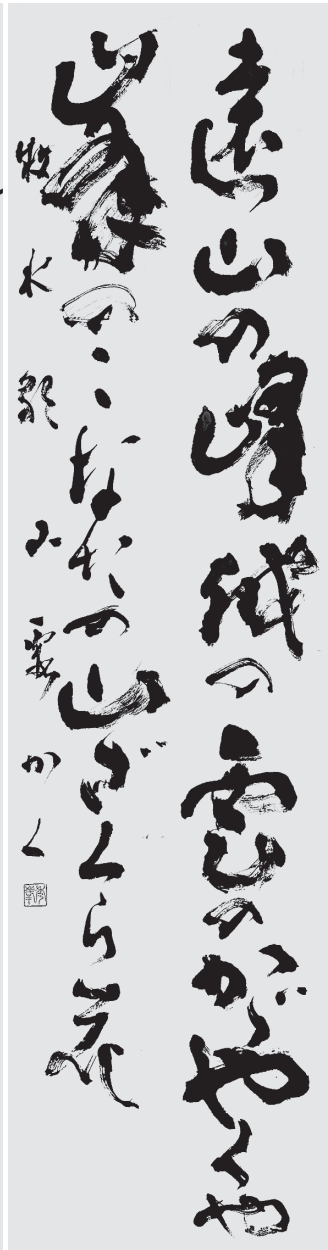 遠山の峰越の雲のかゞやくや
峯のこなたの山ざくら花
牧水歌 かく